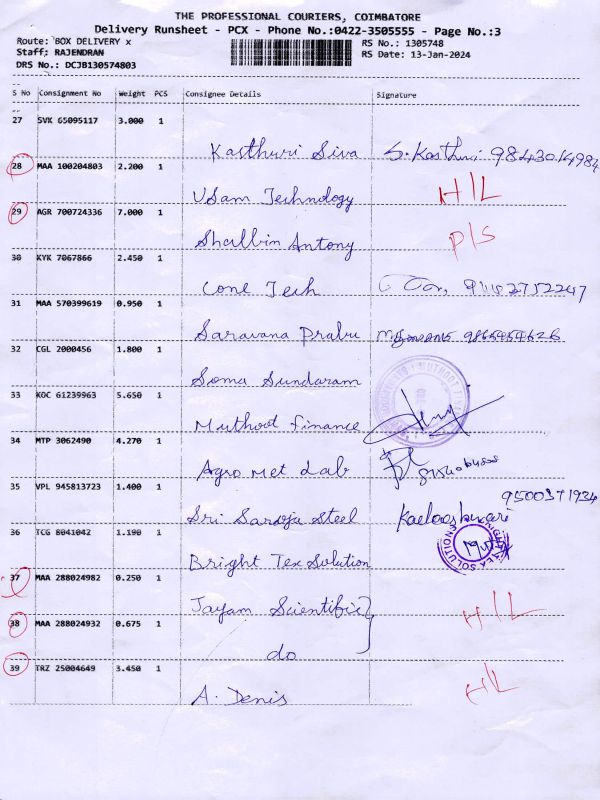 THE PROFESSIONAL COURIERS, COIMBATORE
Delivery Runsheet - PCX - Phone No.:0422-3505555 - Page No.:3
Route: BOX DELIVERY x RS No.: 1305748
Staff: RAJENDRAN RS Date: 13-Jan-2024
DRS No.: DCJB130574803
S No Consignment No Weight PCS Consignee Details Signature
27 SVK 65095117 3.000 1
Kasthuri Siva S. Kasthuri 9843014984
28 MAA 100204803 2.200 1
USam Technology H/L
29 AGR 700724336 7.000 1
Shalbin Antony P/S
30 KYK 7067866 2.450 1
Cone Tech
31 MAA 570399619 0.950 1
Saravana Prabu
32 CGL 2000456 1.800 1
Soma Sundaram
33 KOC 61239963 5.650 1
Muthoot finance
34 MTP 3062490 4.270 1
Agro Met Lab
35 VPL 945813723 1.400 1
9500371924
Sri Saroja Steel
36 TCG 8041042 1.190 1
Bright Tex Solution
37 MAA 288024982 0.250 1
Jayam Scientific H/L
38 MAA 288024932 0.675 1
do
39 TRZ 25004649 3.450 1
A. Denis H/L